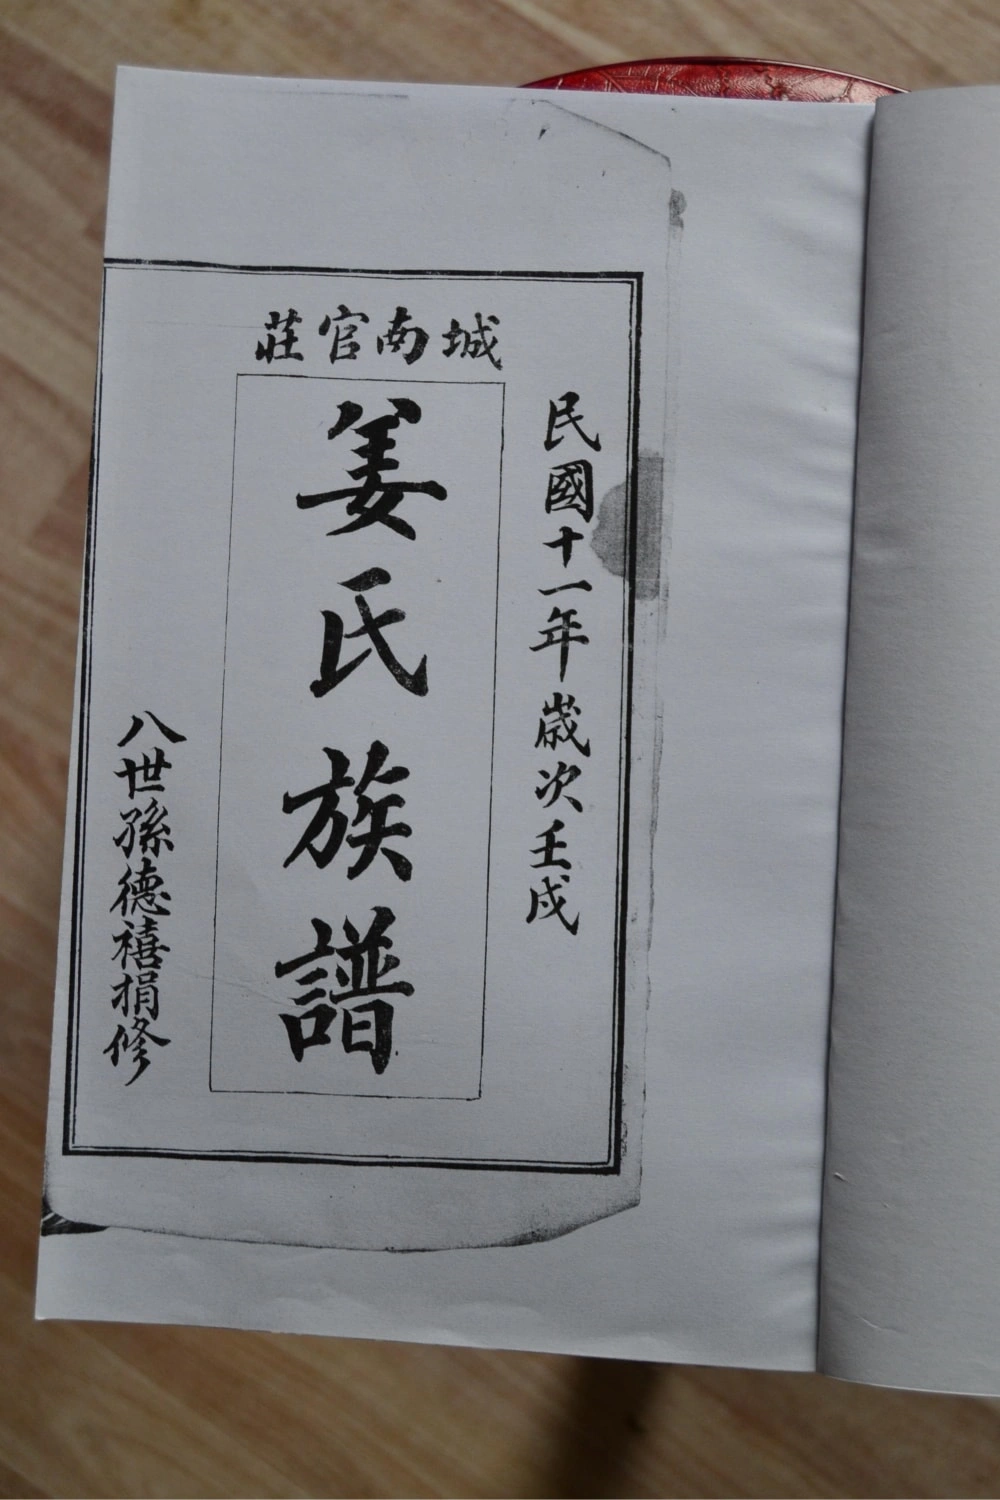 民國十一年歲次壬戌
城南官莊
姜氏族譜
八世孫德禧捐修